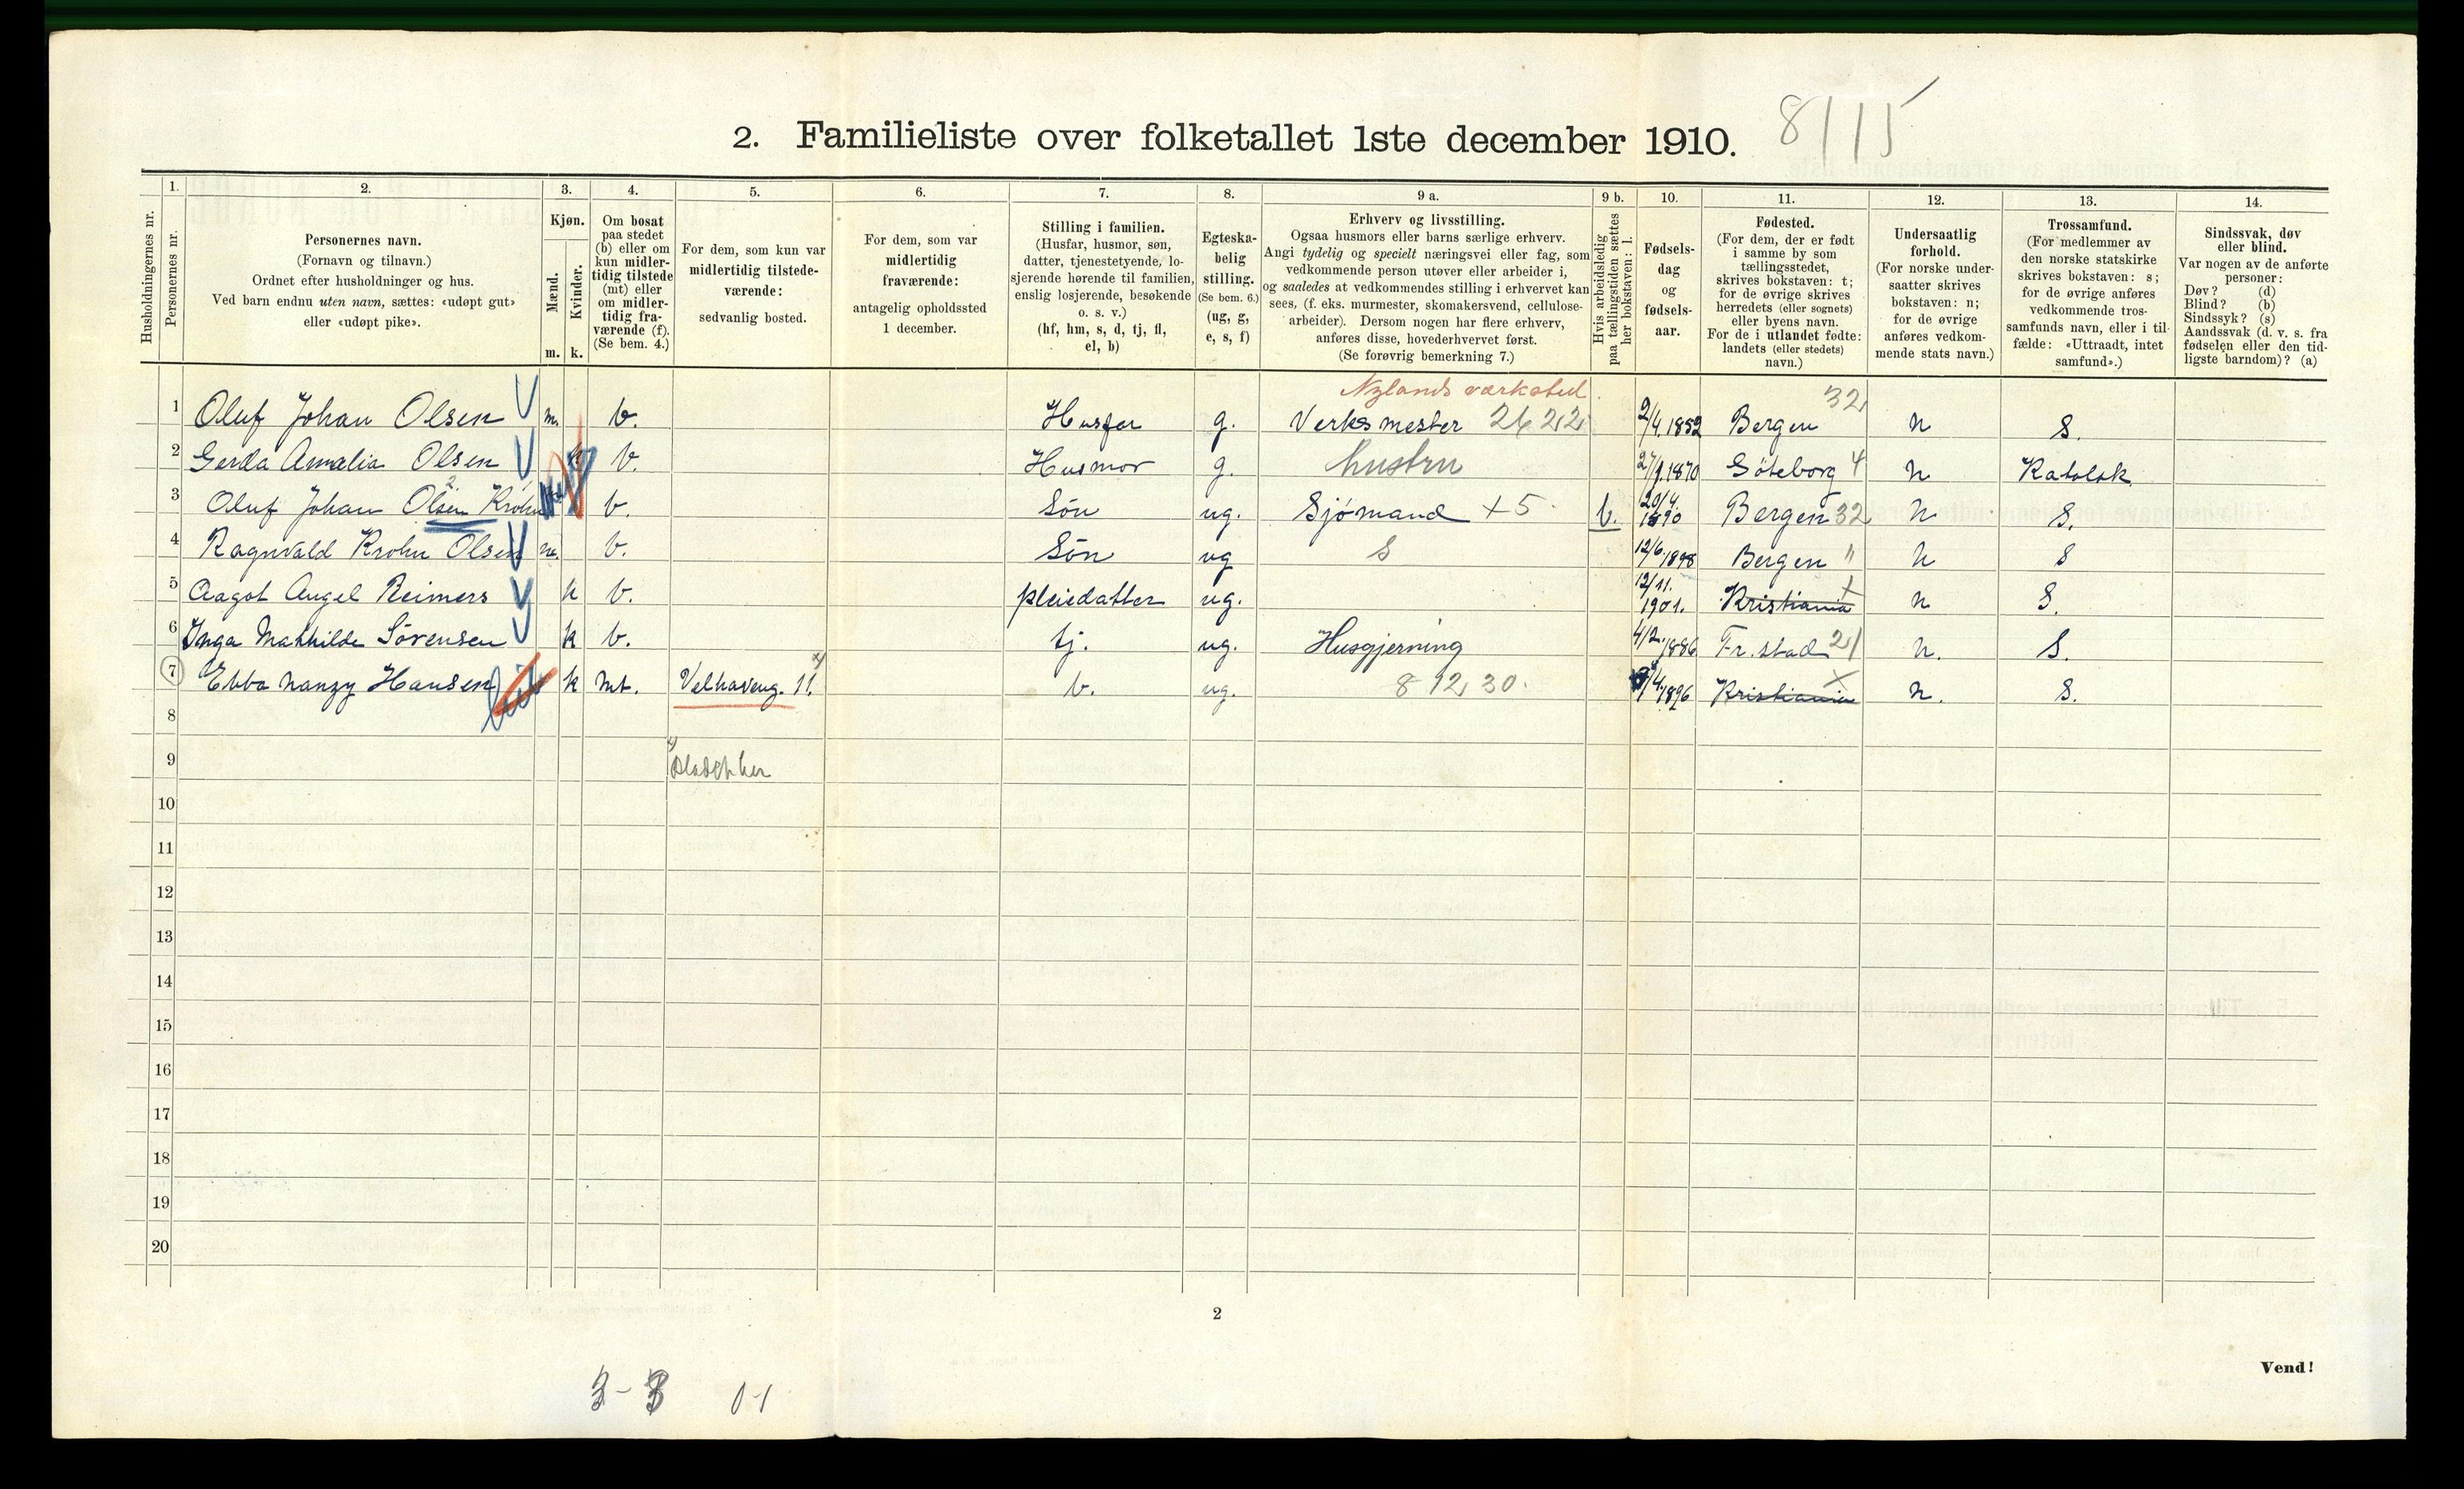 2. Familieliste over folketallet 1ste december 1910. 8115
Husholdningernes nr.
1.
Personernes nr.
2.
Personernes navn.
(Fornavn og tilnavn.)
Ordnet efter husholdninger og hus.
Ved barn endnu uten navn, sættes: «udøpt gut»
eller «udøpt pike».
3.
Kjøn.
Mænd.
Kvinder.
m. k.
4.
Om bosat
paa stedet
(b) eller om
kun midler-
tidig tilstede
(mt) eller
om midler-
tidig fra-
værende (f).
(Se bem. 4.)
5.
For dem, som kun var
midlertidig tilstede-
værende:
sedvanlig bosted.
6.
For dem, som var
midlertidig
fraværende:
antagelig opholdssted
1 december.
7.
Stilling i familien.
(Husfar, husmor, søn,
datter, tjenestetyende, lo-
sjerende hørende til familien,
enslig losjerende, besøkende
o. s. v.)
(hf, hm, s, d, tj, fl,
el, b)
8.
Egteska-
belig
stilling.
(Se bem. 6.)
(ug, g,
e, s, f)
9 a.
Erhverv og livsstilling.
Ogsaa husmors eller barns særlige erhverv.
Angi tydelig og specielt næringsvei eller fag, som
vedkommende person utøver eller arbeider i,
og saaledes at vedkommendes stilling i erhvervet kan
sees, (f. eks. murmester, skomakersvend, cellulose-
arbeider). Dersom nogen har flere erhverv,
anføres disse, hovederhvervet først.
(Se forøvrig bemerkning 7.)
9 b.
Hvis arbeidsledig
paa tællingstiden sættes
her bokstaven: l.
10.
Fødsels-
dag
og
fødsels-
aar.
11.
Fødested.
(For dem, der er født
i samme by som
tællingsstedet,
skrives bokstaven: t;
for de øvrige skrives
herredets (eller sognets)
eller byens navn.
For de i utlandet fødte:
landets (eller stedets)
navn.)
12.
Undersaatlig
forhold.
(For norske under-
saatter skrives
bokstaven: n;
for de øvrige
anføres vedkom-
mende stats navn.)
13.
Trossamfund.
(For medlemmer av
den norske statskirke
skrives bokstaven: s;
for de øvrige anføres
vedkommende tros-
samfunds navn, eller i til-
fælde: «Uttraadt, intet
samfund».)
14.
Sindssvak, døv
eller blind.
Var nogen av de anførte
personer:
Døv? (d)
Blind? (b)
Sindssyk? (s)
Aandssvak (d. v. s. fra
fødselen eller den tid-
ligste barndom)? (a)
Nylands værksted 32
1 Oluf Johan Olsen m. b. Husfar g. Verksmester 2622 2/4.1852 Bergen n S.
2 Gerda Amalia Olsen k b. Husmor g. hustru 27/1.1870 Göteborg 4 n Katolsk
3 Oluf Johan Olsen Krohn b. Sön ug. Sjömand +5 l. 20/4. 1890 Bergen 32 n S.
4 Ragnvald Krohn Olsen m. b. Sön ug S 12/6 1898 Bergen " n S
5 Aagot Angel Reimers k b. pleiedatter ug. 12/11. 1901. Kristiania n S.
6 Inga Mathilde Sörensen k b. tj. ug. Husgjerning 4/2.1886 Fr.stad 21 n. S.
7 Ebba Nanzy Hansen k mt. Velhaveng. 11. b. ug. 8 12 30. /4 1896 Kristiania n. S.
8
9
10
11
12
13
14
15
16
17
18
19
20
2
Vend!
3-3 0-1